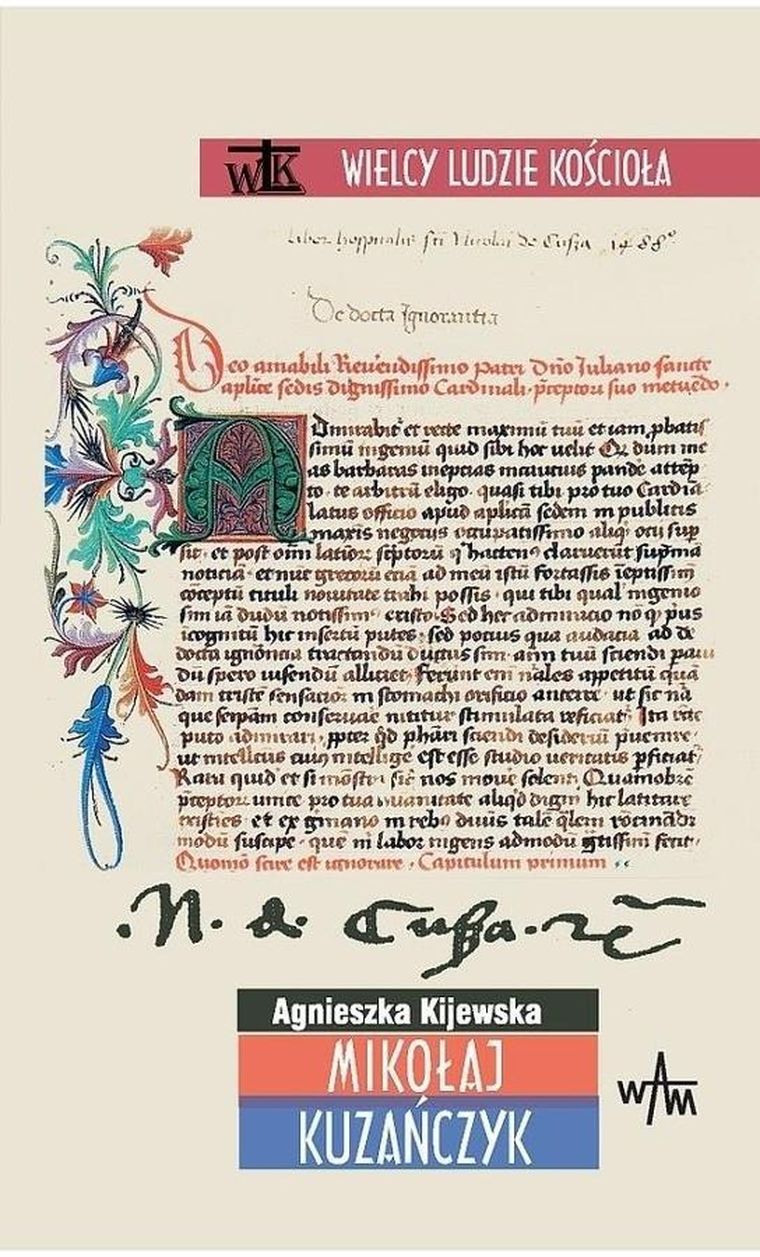 WLK WIELCY LUDZIE KOŚCIOŁA
Liber hospitalis sti Nicolai de Cusza 1488º
De docta Ignorantia
Deo amabili Reverendissimo patri Dño Iuliano sancte
aplice sedis dignissimo Cardinali. preceptori suo metuedo.
Admirabit et recte maximũ tuũ et iam pbatis
simũ ingeniũ quid sibi hoc velit Q dum me
as barbaras ineptias incautius pande attep
to. te arbitrũ eligo. quasi tibi pro tuo Cardia
latus officio apud aplicã sedem in publicis
maxis negocys occupatissimo aliq ocii sup
sit. et post om latior septorũ q hacten9 claruerũt supmã
noticiã. et nũc grecorũ eciã ad meũ istũ fortassis ieptissim
coceptũ tituli novitate trahi possis. qui tibi qual ingenio
sim iã dudũ notissim existo. Sed hec admiracio nõ q pus
icognitũ hic insertũ putes. sed pocius qua audacia ad de
docta ignoncia tractandũ ductus sim. aim tuũ sciendi
dũ spero visendũ alliciet. Ferunt em nales appetitũ quã
dam triste sensacio in stomachi orificio anteire. ut sic nã
que seipam conservae nititur stimulata reficiat. Ita
puto admirari. ppter qd phari sciendi desideriũ pvenire.
ut intellcus cui9 intellige est esse studio veritatis pficiat.
Rara quid et si monstra sic nos move solent. Quamobre
preceptor unice pro tua humanitate aliqd digni hic latitare
existies. et ex gmano in rebo divis tale qlem rocinandi
modũ suscipe. que m labor ingens admodũ gtissim fecit.
Quomõ scire est ignorare. Capitulum primum
.N. de Cusza.
Agnieszka Kijewska
MIKOŁAJ
KUZAŃCZYK
WAM